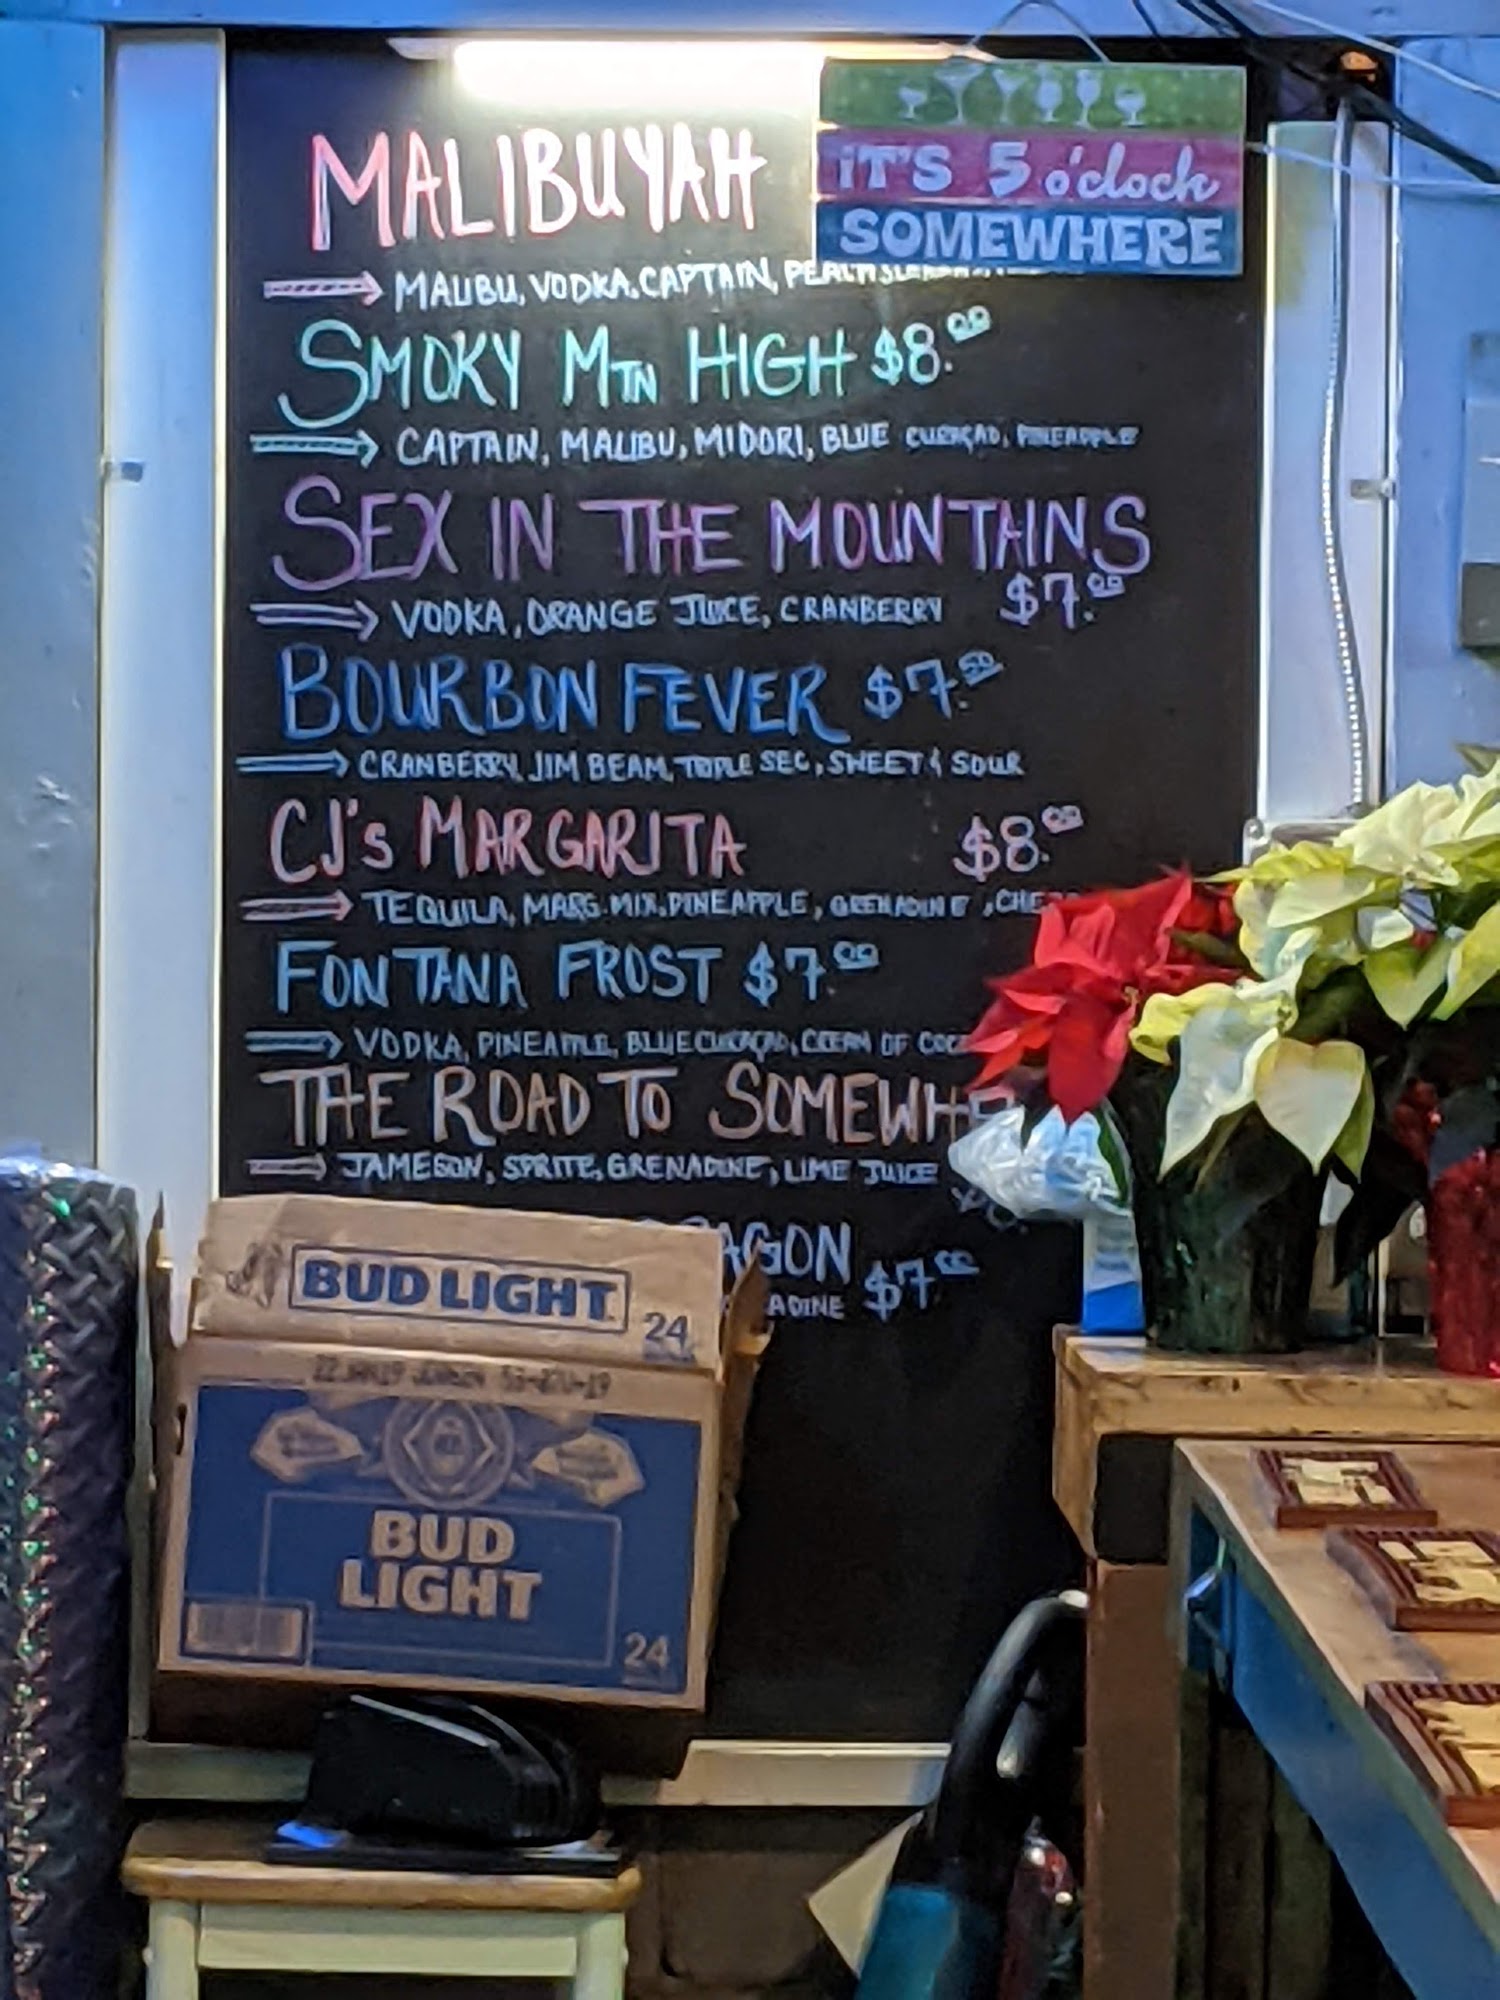 MALIBUYAH
iT'S 5 o'clock
SOMEWHERE
MALIBU, VODKA, CAPTAIN, PEACH
SMOKY MTN HIGH $8.00
CAPTAIN, MALIBU, MIDORI, BLUE CURAÇAO, PINEAPPLE
SEX IN THE MOUNTAINS
$7.00
VODKA, ORANGE JUICE, CRANBERRY
BOURBON FEVER $7.50
CRANBERRY, JIM BEAM, TRIPLE SEC, SWEET & SOUR
CJ's MARGARITA $8.00
TEQUILA, MARG. MIX, PINEAPPLE, GRENADINE, CHE
FONTANA FROST $7.00
VODKA, PINEAPPLE, BLUE CURAÇAO, CREAM OF COC
THE ROAD TO SOMEWHE
JAMESON, SPRITE, GRENADINE, LIME JUICE
AGON $7.00
ADINE
BUD LIGHT
24
BUD
LIGHT
24